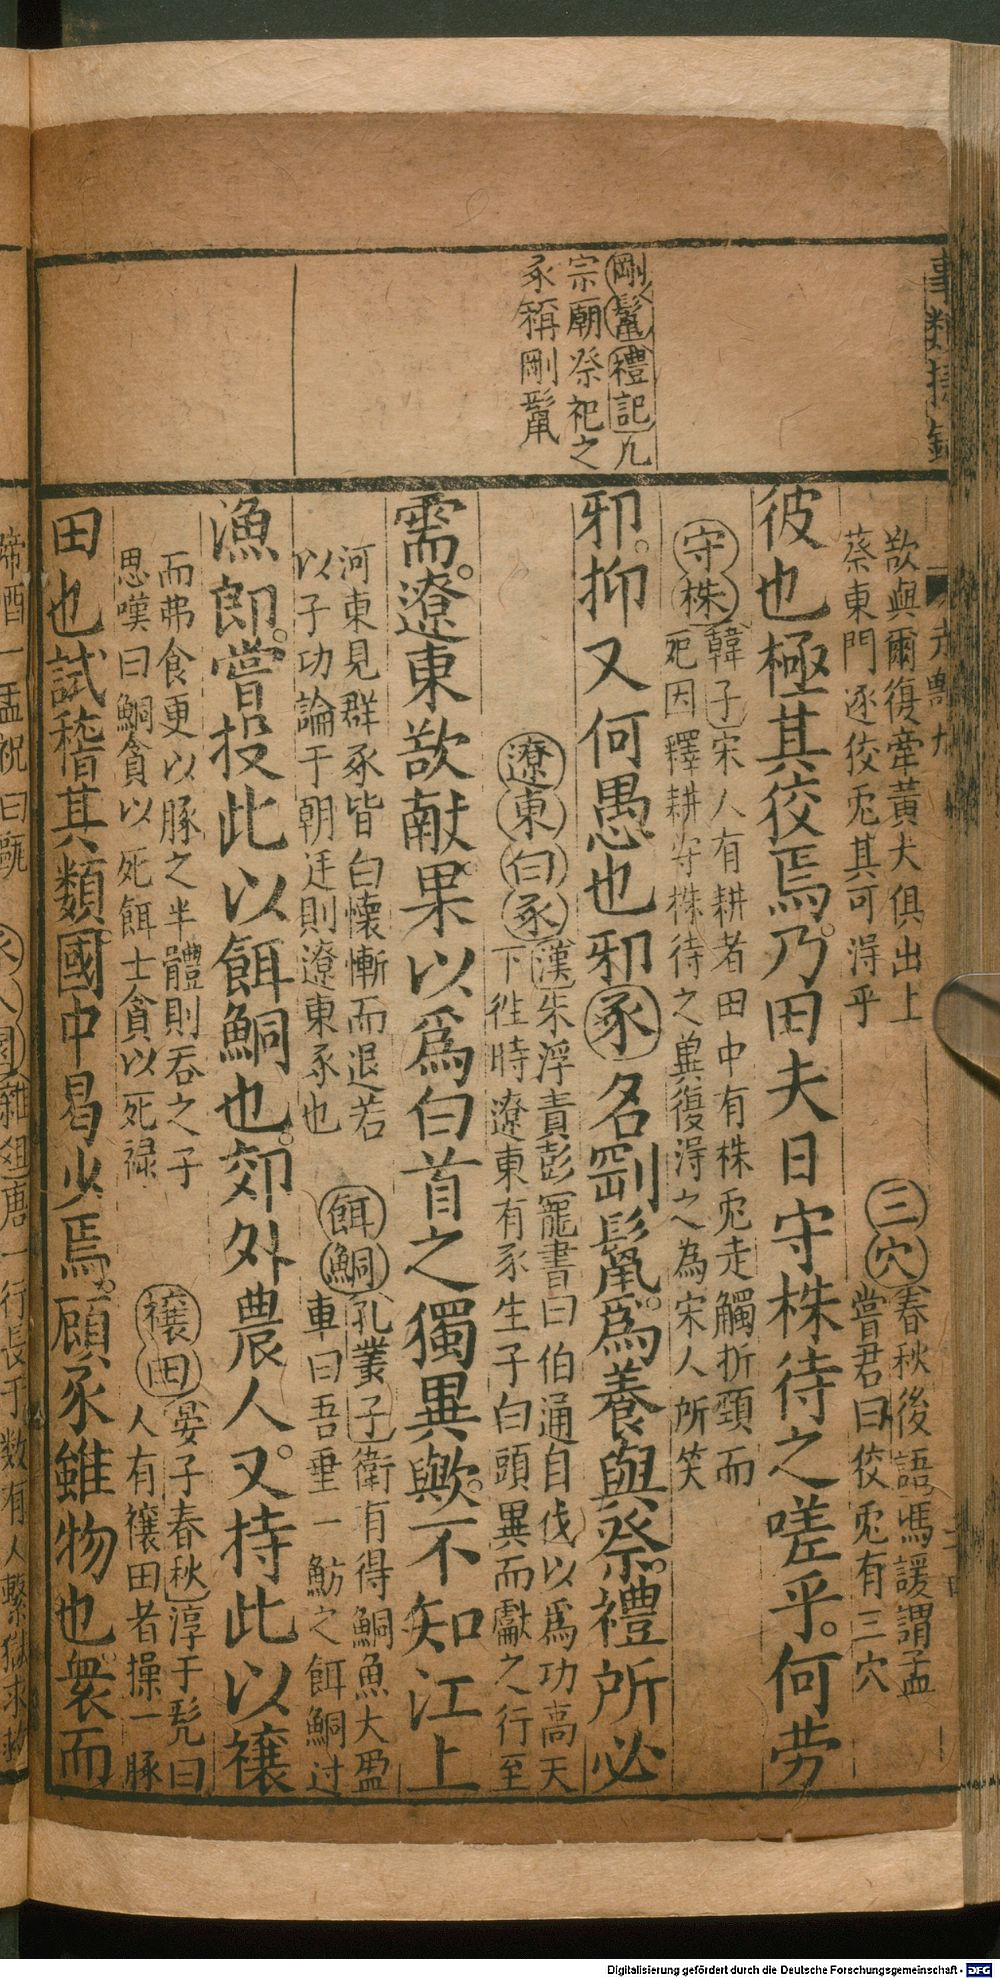 剛鬣禮記凡
宗廟祭祀之
豕稱剛鬣
欲與爾復牽黃犬俱出上
蔡東門逐佼兎其可淂乎
三穴
春秋後語馮諼謂孟
嘗君曰佼兎有三穴
彼也極其佼焉乃田夫日守株待之嗟乎何劳
守株
韓子宋人有耕者田中有株兎走觸折頸而
死因釋耕守株待之兾復淂之為宋人所笑
邪抑又何愚也邪豕名剛鬣爲養與祭禮所必
遼東白豕
漢朱浮責彭寵書曰伯通自伐以爲功高天
下徃時遼東有豕生子白頭異而獻之行至
需遼東欲献果以爲白首之獨異歟不知江上
河東見群豕皆白懐慚而退若
以子功論于朝廷則遼東豕也
餌鯛
孔叢子衛有得鯛魚大盈
車曰吾垂一魴之餌鯛过
漁郎嘗投此以餌鯛也郊外農人又持此以禳
而弗食更以豚之半體則吞之子
思嘆曰鯛貪以死餌士貪以死禄
禳田
晏子春秋淳于髠曰
人有禳田者操一豚
田也試稽其類國中曷少焉顧豕雖物也褻而
蹄酒一盂祝曰甌
雜俎唐一行長于数有人繫獄求
Digitalisierung gefördert durch die Deutsche Forschungsgemeinschaft - DFG